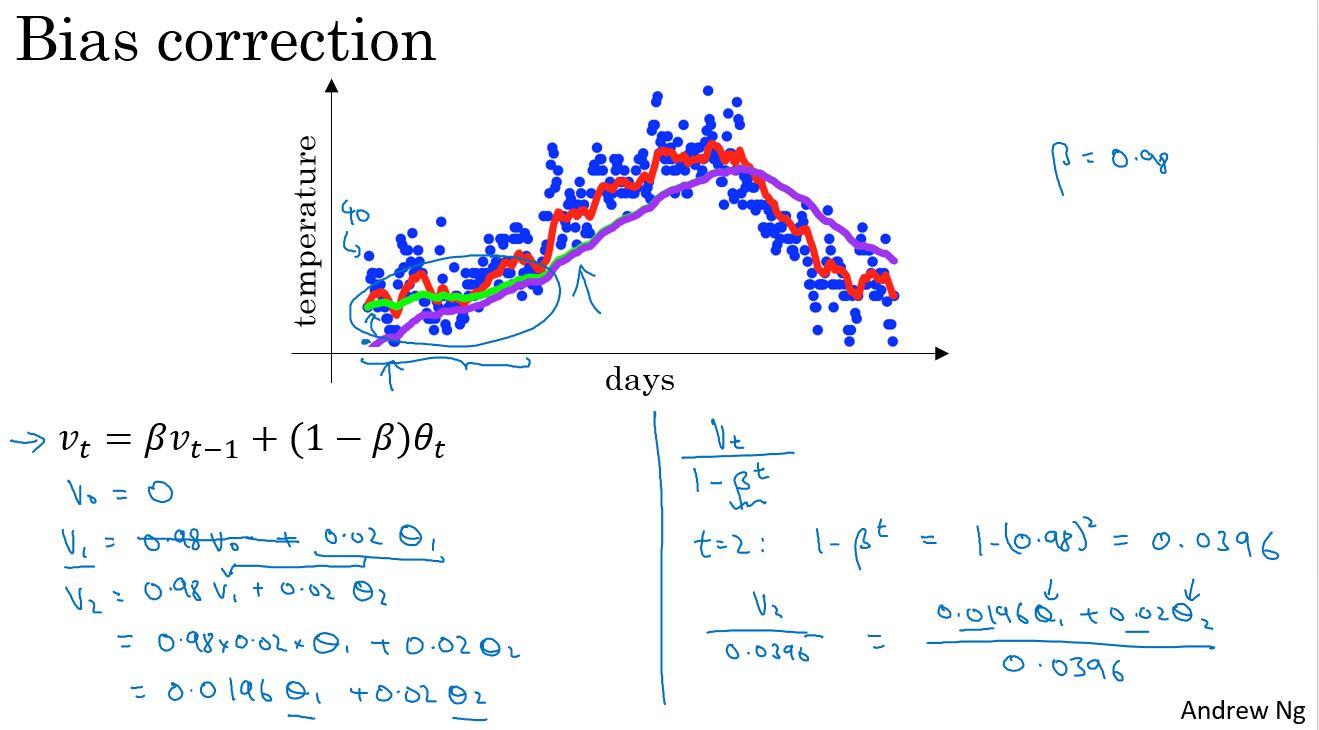 Bias correction
temperature
40
β = 0.98
days
→ v_t = βv_{t−1} + (1 − β)θ_t
V_0 = 0
V_1 = 0.98 V_0 + 0.02 θ_1
V_2 = 0.98 V_1 + 0.02 θ_2
= 0.98 x 0.02 x θ_1 + 0.02 θ_2
= 0.0196 θ_1 + 0.02 θ_2
V_t / 1 - β^t
t=2: 1 - β^t = 1 - (0.98)^2 = 0.0396
V_2 / 0.0396 = 0.0196 θ_1 + 0.02 θ_2 / 0.0396
Andrew Ng